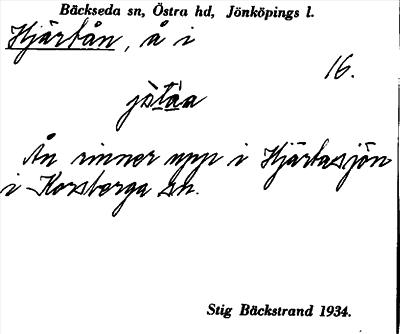 Bäckseda sn, Östra hd, Jönköpings l.
Hjärtån, å i
16.
jä̀táa
Ån rinner upp i Hjärtasjön
i Korsberga sn.
Stig Bäckstrand 1934.